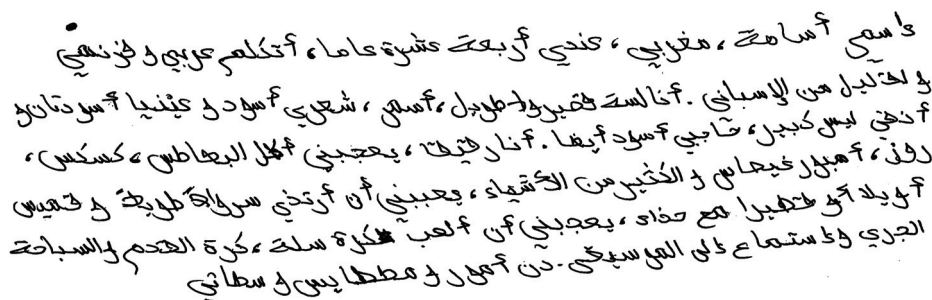 اسمي أسامة، مغربي، عندي أربعة عشرة عاما، أتكلم عربي و فرنسي
و القليل من الإسباني. أنا لست قصير و لا طويل، أسمر، شعري أسود و عينيا أسودتان و
أذني ليس كبير، حاجبي أسود أيضا. أنا رقيق، يعجبني أكل البطاطس، كسكس،
روز، أمبورغيساس و الكثير من الأشياء، يعجبني أن أرتدي سروالا طويلا و قميس
أو قصيرا مع حذاء، يعجبني أن ألعب كرة سلة، كرة القدم والسباحة
الجري والاستماع إلى الموسيقى.